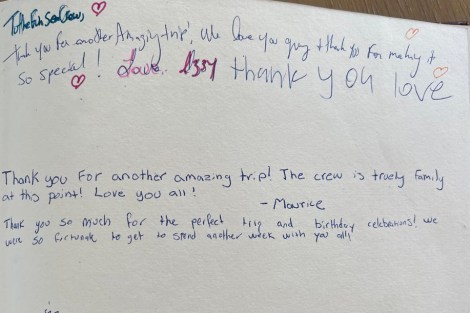 To the Fun Sea Crew,
Thank you for another Amazing trip! We love you guys + thank you for making it
so special! Love Izzy thank you love
Thank you For another amazing trip! The crew is truely family
at this point! Love you all!
- Maurice
Thank you so much for the perfect trip and birthday celebrations! we
were so fortunate to get to spend another week with you all!